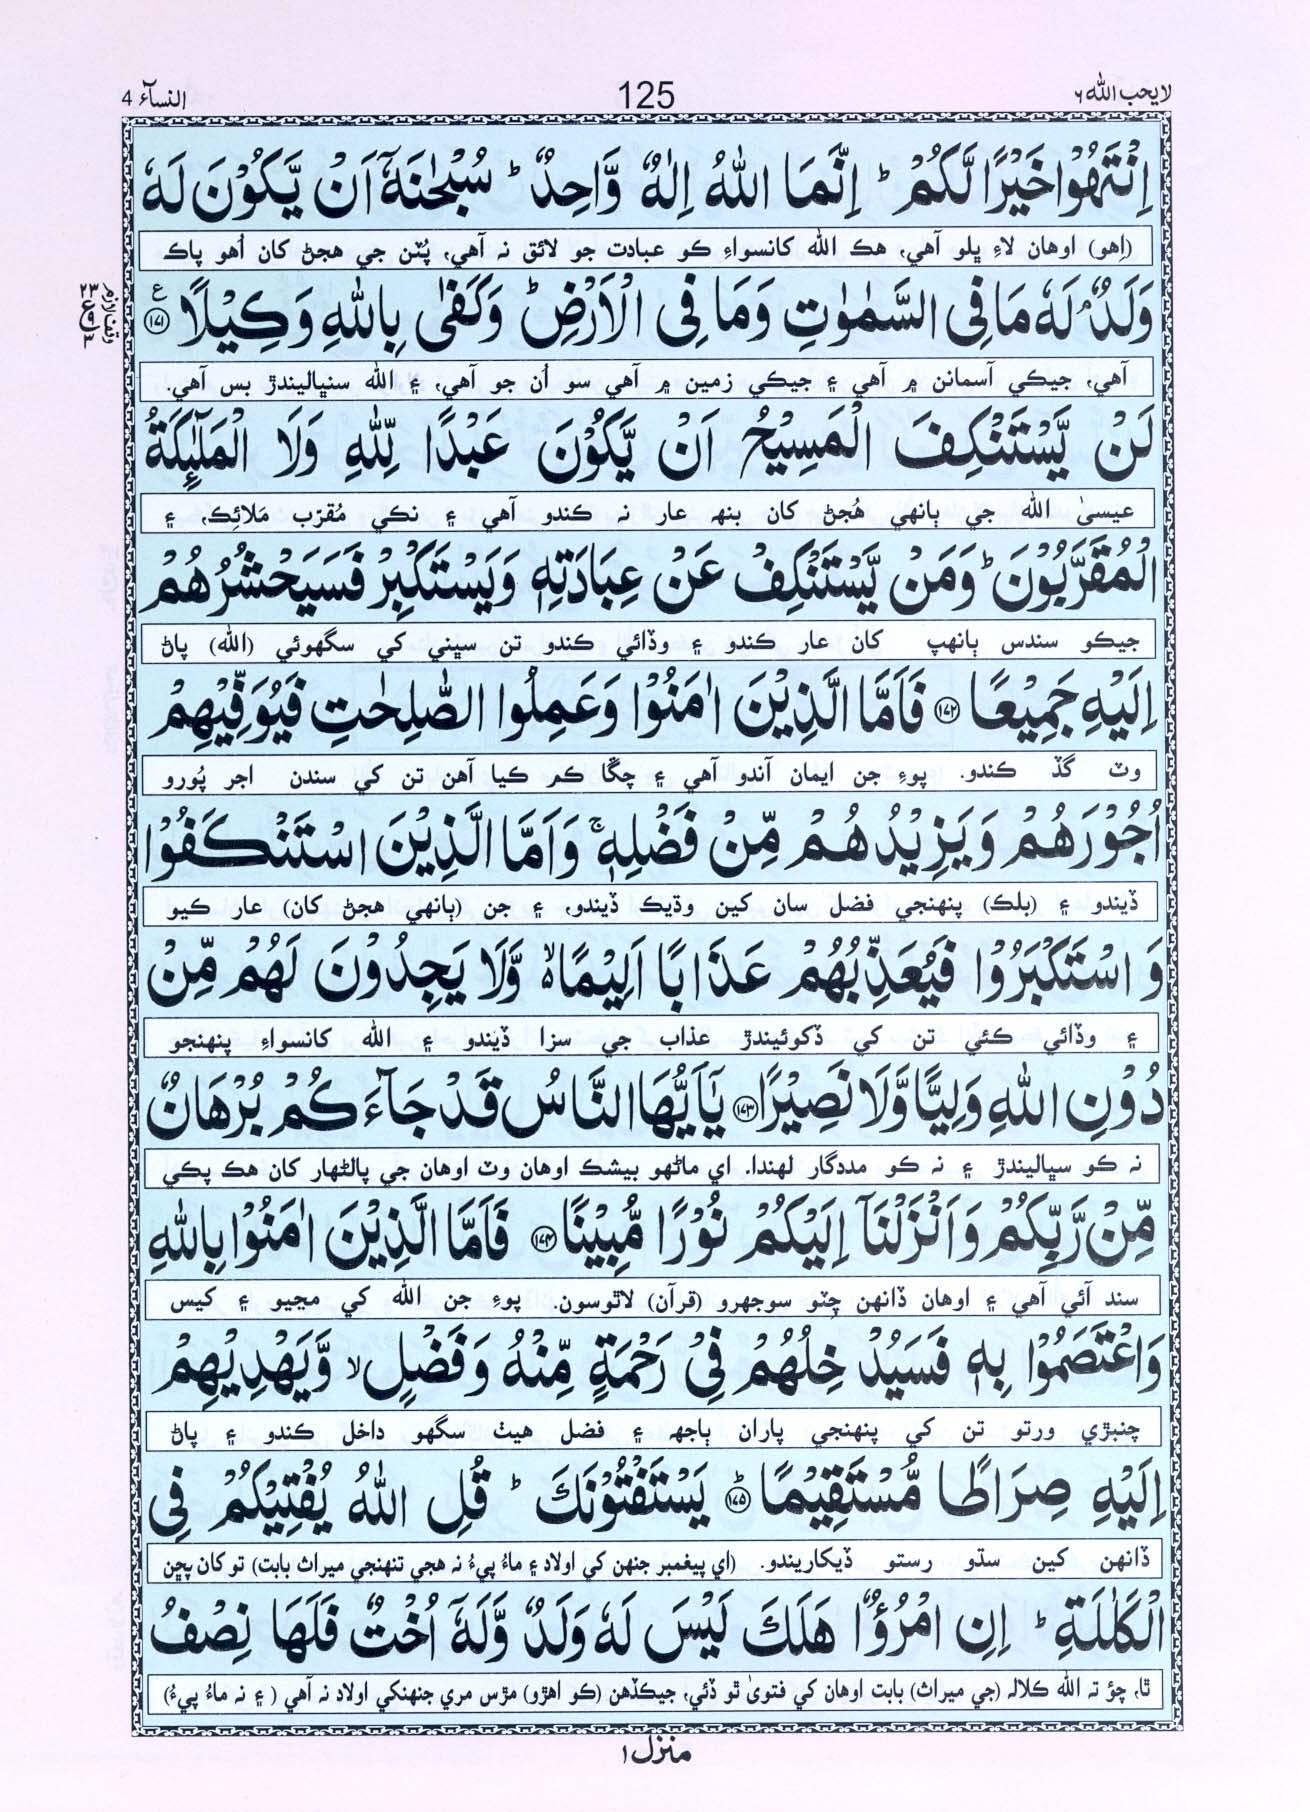 لايحب الله ٦
125
النسآء 4
اِنْتَهُوْا خَيْرًا لَّكُمْ ؕ اِنَّمَا اللّٰهُ اِلٰهٌ وَّاحِدٌ ؕ سُبْحٰنَهٗۤ اَنْ يَّكُوْنَ لَهٗ
(اِهو) اوهان لاءِ ڀلو آهي، هڪ الله کانسواءِ ڪو عبادت جو لائق نہ آهي، پُٽن جي هجڻ کان اُهو پاڪ
وَلَدٌ ۘ لَهٗ مَا فِي السَّمٰوٰتِ وَمَا فِي الْاَرْضِ ؕ وَكَفٰى بِاللّٰهِ وَكِيْلًا ﴿۱۷۱﴾ ع
وقف لازم
٢٣
ع
آهي، جيڪي آسمانن ۾ آهي ۽ جيڪي زمين ۾ آهي سو اُن جو آهي، ۽ الله سنڀاليندڙ بس آهي.
لَنْ يَّسْتَنْكِفَ الْمَسِيْحُ اَنْ يَّكُوْنَ عَبْدًا لِّلّٰهِ وَلَا الْمَلٰٓئِكَةُ
عيسىٰ الله جي ٻانهي هُجڻ کان بنهہ عار نہ ڪندو آهي ۽ نڪي مُقرّب مَلائِڪ، ۽
الْمُقَرَّبُوْنَ ؕ وَمَنْ يَّسْتَنْكِفْ عَنْ عِبَادَتِهٖ وَيَسْتَكْبِرْ فَسَيَحْشُرُهُمْ
جيڪو سندس ٻانهپ کان عار ڪندو ۽ وڏائي ڪندو تن سڀني کي سگهوئي (الله) پاڻ
اِلَيْهِ جَمِيْعًا ﴿۱۷۲﴾ فَاَمَّا الَّذِيْنَ اٰمَنُوْا وَعَمِلُوا الصّٰلِحٰتِ فَيُوَفِّيْهِمْ
وٽ گڏ ڪندو. پوءِ جن ايمان آندو آهي ۽ چڱا ڪم ڪيا آهن تن کي سندن اجر پُورو
اُجُوْرَهُمْ وَيَزِيْدُهُمْ مِّنْ فَضْلِهٖ ۚ وَاَمَّا الَّذِيْنَ اسْتَنْكَفُوْا
ڏيندو ۽ (بلڪ) پنهنجي فضل سان کين وڌيڪ ڏيندو، ۽ جن (ٻانهي هجڻ کان) عار ڪيو
وَاسْتَكْبَرُوْا فَيُعَذِّبُهُمْ عَذَابًا اَلِيْمًا ۙ وَّلَا يَجِدُوْنَ لَهُمْ مِّنْ
۽ وڏائي ڪئي تن کي ڏکوئيندڙ عذاب جي سزا ڏيندو ۽ الله کانسواءِ پنهنجو
دُوْنِ اللّٰهِ وَلِيًّا وَّلَا نَصِيْرًا ﴿۱۷۳﴾ يٰۤاَيُّهَا النَّاسُ قَدْ جَآءَكُمْ بُرْهَانٌ
نہ ڪو سڀاليندڙ ۽ نہ ڪو مددگار لهندا. اي ماڻهو بيشڪ اوهان وٽ اوهان جي پالڻهار کان هڪ پڪي
مِّنْ رَّبِّكُمْ وَاَنْزَلْنَاۤ اِلَيْكُمْ نُوْرًا مُّبِيْنًا ﴿۱۷۴﴾ فَاَمَّا الَّذِيْنَ اٰمَنُوْا بِاللّٰهِ
سند آئي آهي ۽ اوهان ڏانهن چِٽو سوجهرو (قرآن) لاٿوسون. پوءِ جن الله کي مڃيو ۽ کيس
وَاعْتَصَمُوْا بِهٖ فَسَيُدْخِلُهُمْ فِيْ رَحْمَةٍ مِّنْهُ وَفَضْلٍ ۙ وَّيَهْدِيْهِمْ
چنبڙي ورتو تن کي پنهنجي پاران ٻاجهہ ۽ فضل هيٺ سگهو داخل ڪندو ۽ پاڻ
اِلَيْهِ صِرَاطًا مُّسْتَقِيْمًا ﴿۱۷۵﴾ ؕ يَسْتَفْتُوْنَكَ ؕ قُلِ اللّٰهُ يُفْتِيْكُمْ فِي
ڏانهن کين سڌو رستو ڏيکاريندو. (اي پيغمبر جنهن کي اولاد ۽ ماءُ پيءُ نہ هجي تنهنجي ميراث بابت) تو کان پڇن
الْكَلٰلَةِ ؕ اِنِ امْرُؤٌا هَلَكَ لَيْسَ لَهٗ وَلَدٌ وَّلَهٗۤ اُخْتٌ فَلَهَا نِصْفُ
ٿا، چؤ تہ الله ڪلالہ (جي ميراث) بابت اوهان کي فتوىٰ ٿو ڏئي، جيڪڏهن (ڪو اهڙو) مڙس مري جنهنکي اولاد نہ آهي ( ۽ نہ ماءُ پيءُ)
منزل ١